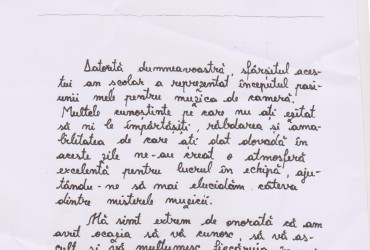 Datorită dumneavoastră, sfârșitul aces-
tui an școlar a reprezentat începutul pasi-
unii mele pentru muzica de cameră.
Multele cunoștințe pe care nu ați ezitat
să ni le împărtășiți, răbdarea și ama-
bilitatea de care ați dat dovadă în
aceste zile ne-au creat o atmosferă
excelentă pentru lucrul în echipă, aju-
tându-ne să mai elucidăm câteva
dintre misterele muzicii.
Mă simt extrem de onorată că am
avut ocazia să vă cunosc, să vă as-
cult și să vă mulțumesc